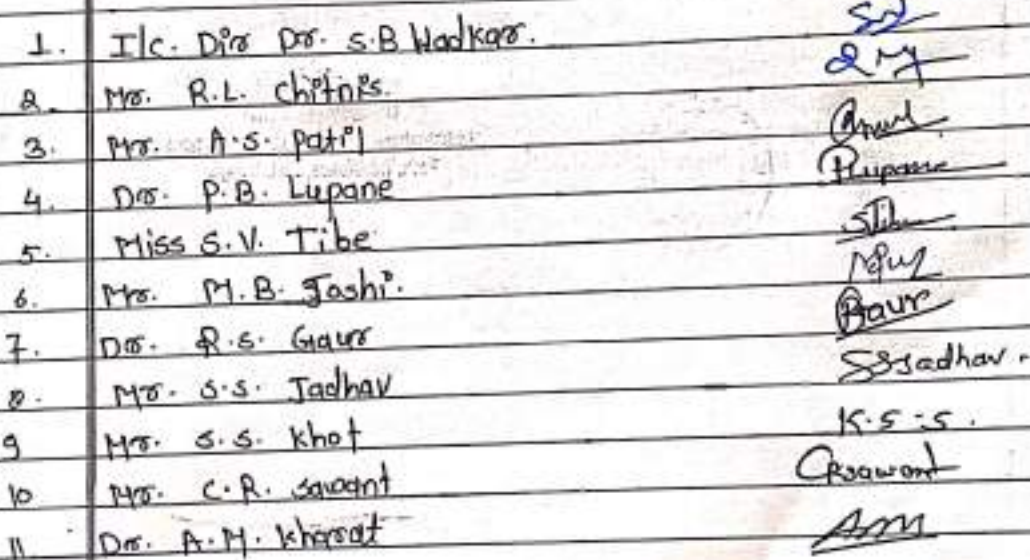 1. I/c. Dir Dr. S.B Wadkar.
2. Mr. R.L. Chitnis.
3. Mr. A.S. Patil
4. Dr. P.B. Lupane Plupane
5. Miss S.V. Tibe
6. Mr. M.B. Joshi.
7. Dr. R.S. Gaur Gaur
8. Mr. S.S. Jadhav SSJadhav.
9 Mr. S.S. Khot K.S.S.
10 Mr. C.R. Sawant CRSawant
11 Dr. A.M. Kharat